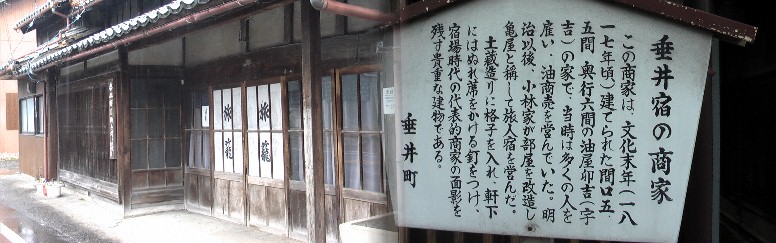 垂井宿の商家
この商家は、文化末年(一八
一七年頃)建てられた間口五、
五間、奥行六間の油屋卯吉(宇
吉)の家で、当時は多くの人を
雇い、油商売を営んでいた。明
治以後、小林家が部屋を改造し
亀屋と称して旅人宿を営んだ。
土蔵造りに格子を入れ、軒下
にはぬれ蓆をかける釘をつけ、
宿場時代の代表的商家の面影を
残す貴重な建物である。
垂井町
旅籠
旅籠